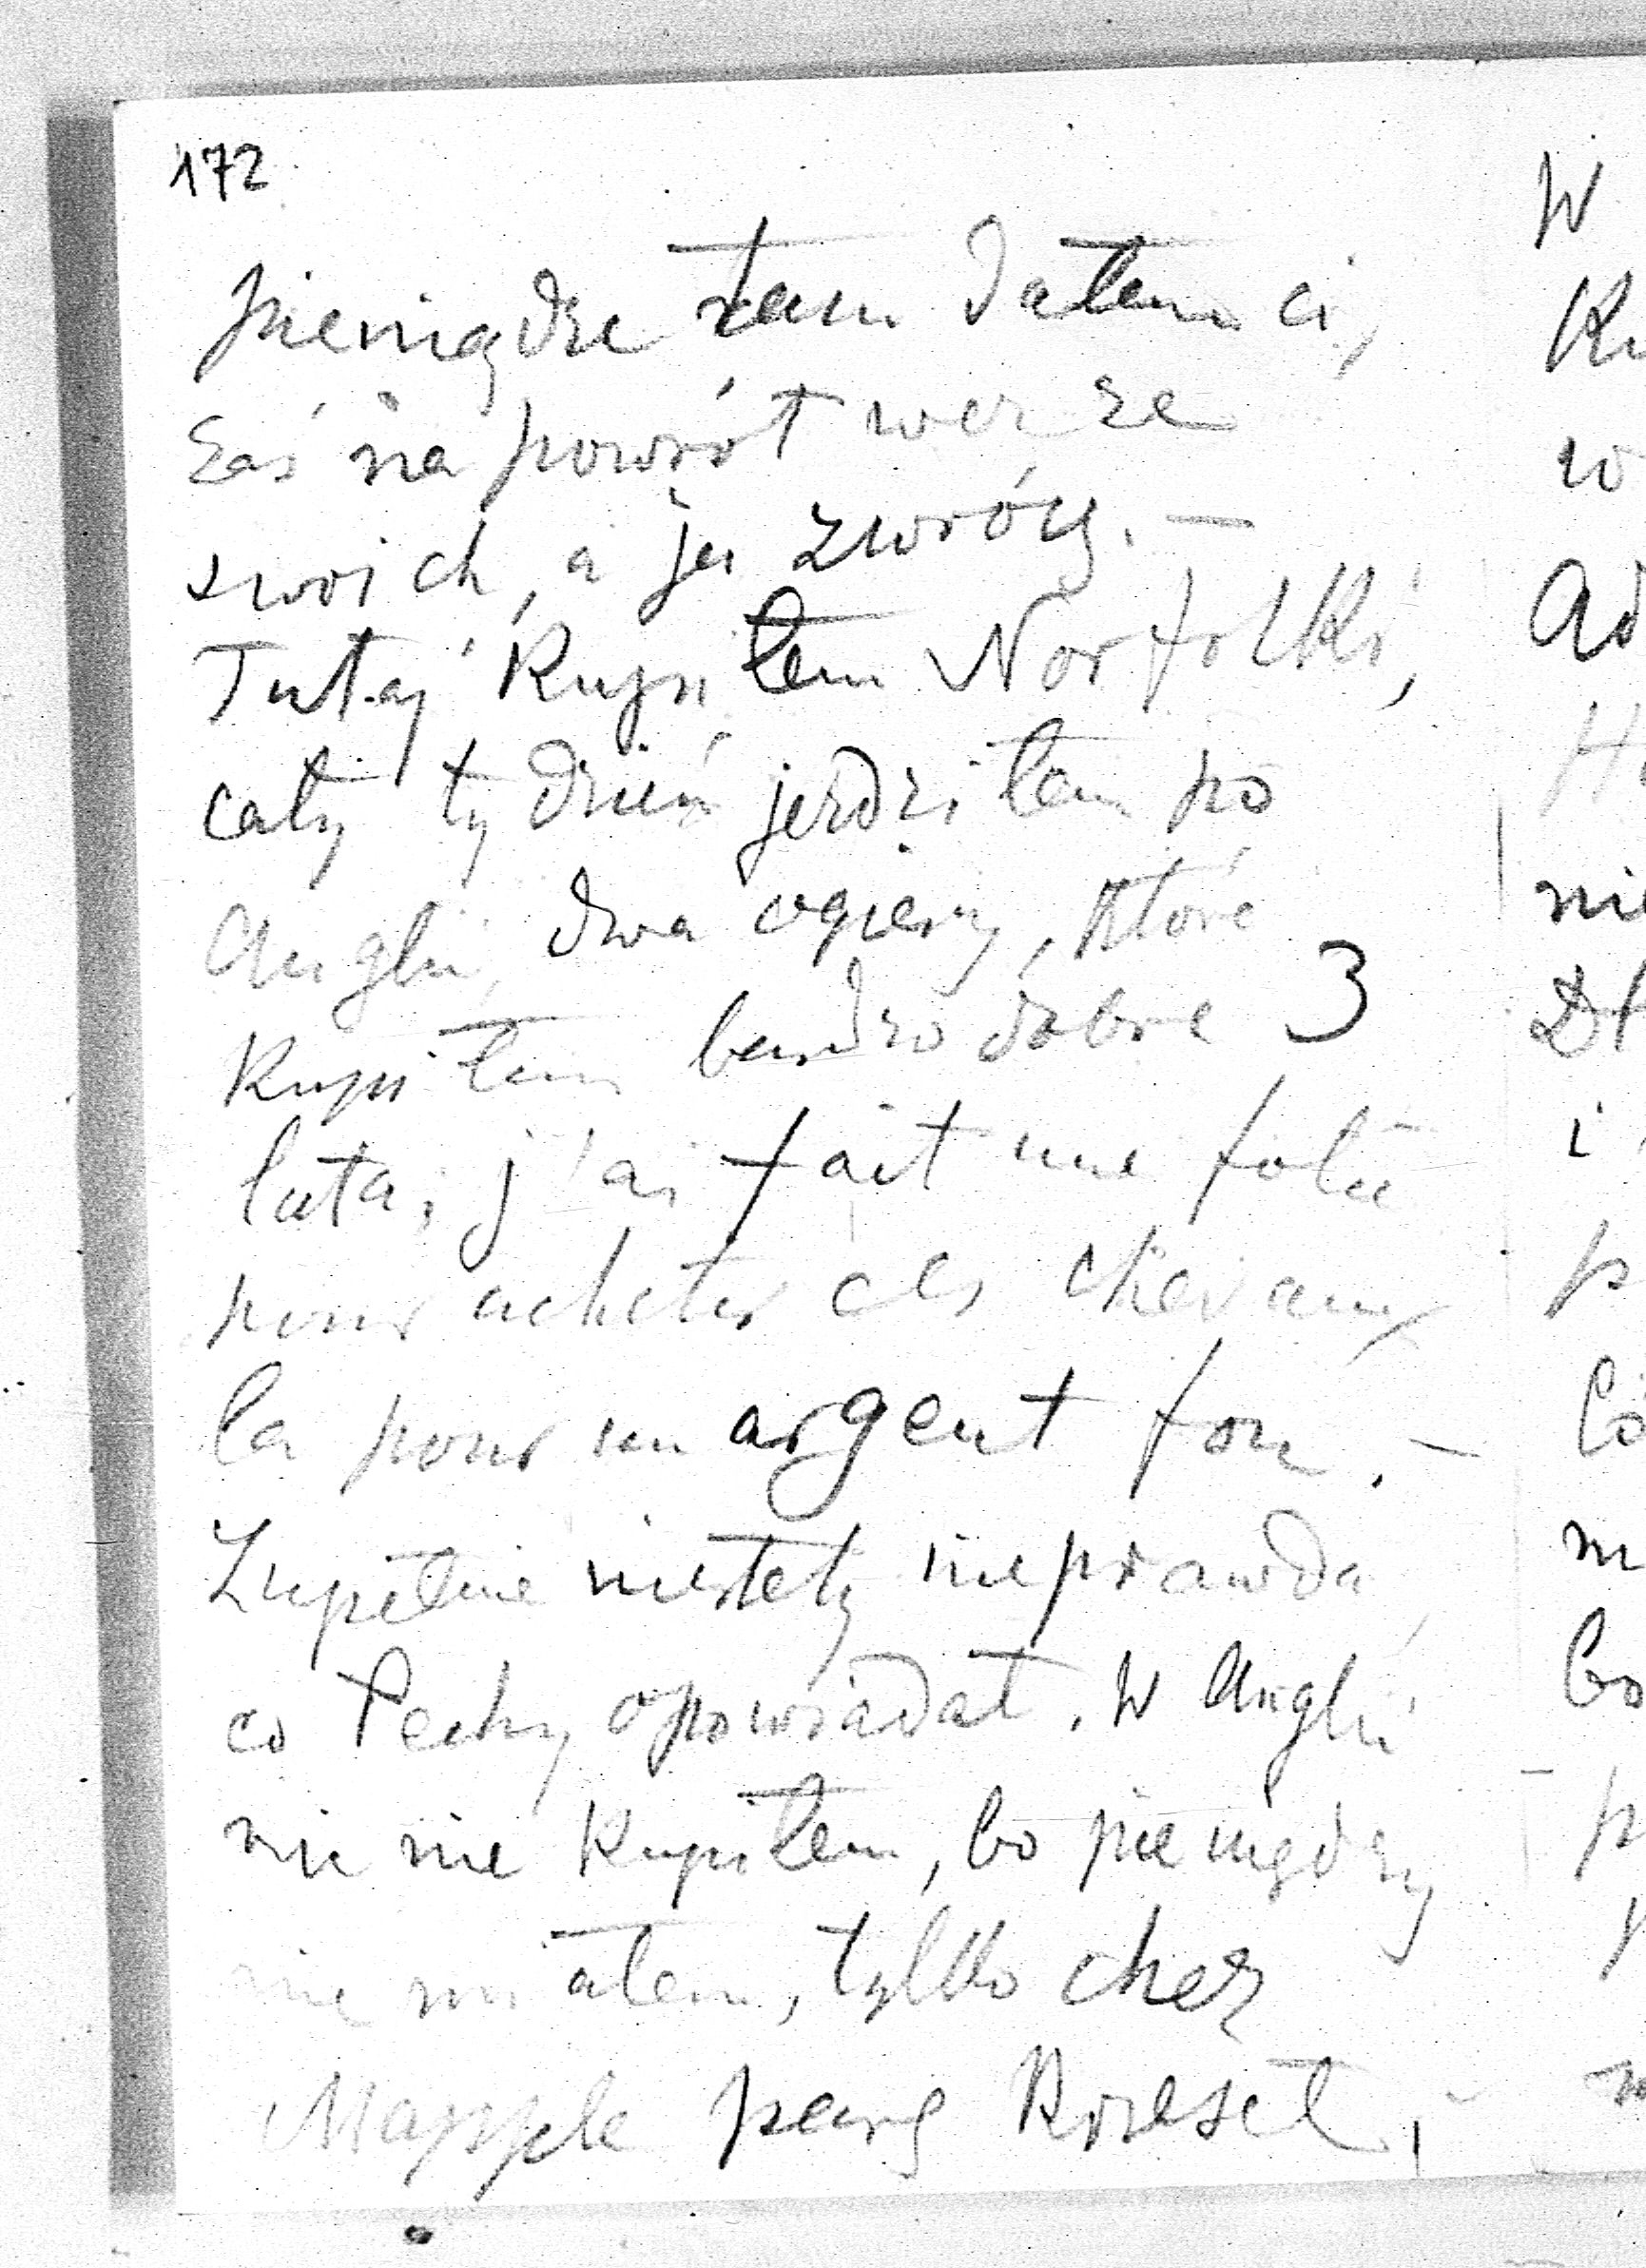 172
pieniądze tam dałem ci,
zaś na powrót weź ze
swoich, a ja zwrócę. —
Tutaj kupiłem Norfolki,
cały tydzień jeździłem po
Anglii, dwa ogiery, które
kupiłem bardzo dobre 3
lata, j'ai fait une folie
pour acheter ces chevaux
la pour un argent fou. —
Zupełnie niestety nieprawda,
co Pechy opowiadał. W Anglii
nic nie kupiłem, bo pieniędzy
nie miałem, tylko chez
Mapple parę krzeseł,